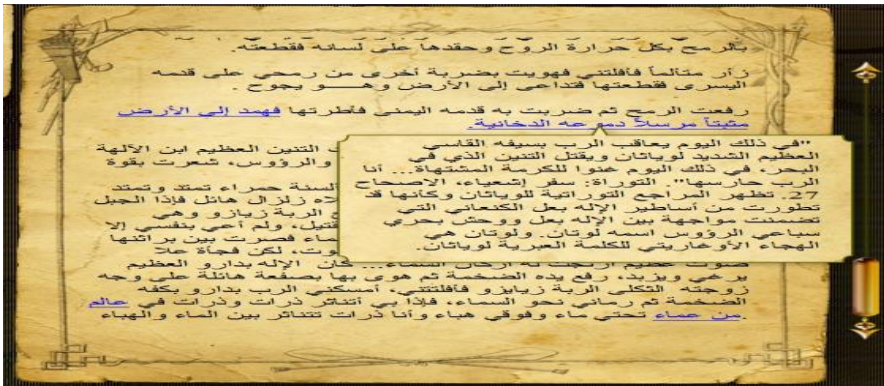 بالرمح بكل حرارة الروح وحقدها على لسانه فقطعته.
زأر متألماً فأفلتني فهويت بضربة أخرى من رمحي على قدمه
اليسرى فقطعتها فتداعى إلى الأرض وهــو يجوح.
رفعت الرمح ثم ضربت به قدمه اليمنى فأطرتها فهمد إلى الأرض
مثبتاً مرسلاً دموعه الدخانية.
"في ذلك اليوم يعاقب الرب بسيفه القاسي
العظيم الشديد لوياثان ويقتل التنين الذي في
البحر، في ذلك اليوم غنوا للكرمة المشتهاة... أنا
الرب حارسها". التوراة: سفر إشعياء، الاصحاح
27. تظهر المراجع التوراتية للوياثان وكأنها قد
تطورت من أساطير الإله بعل الكنعاني التي
تضمنت مواجهة بين الإله بعل ووحش بحري
سباعي الرؤوس اسمه لوتان. ولوتان هي
الهجاء الأوغاريتي للكلمة العبرية لوياثان.
التنين العظيم ابن الآلهة
والرؤوس، شعرت بقوة
السنة حمراء تمتد وتمتد
زلزال هائل فإذا الجبل
الربة زيازو وهي
قتيل، ولم أعي بنفسي إلا
فصرت بين براثنها
لكن فجأة علا
السماء... كان الإله بدارو العظيم
يرغي ويزبد، رفع يده الضخمة ثم هوى بها بصفعة هائلة على وجه
زوجته الثكلى الربة زيايزو فأفلتتني، أمسكني الرب بدارو بكفه
الضخمة ثم رماني نحو السماء، فإذا بي أتناثر ذرات وذرات في عالم
من عماء تحتي ماء وفوقي هباء وأنا ذرات تتناثر بين الماء والهباء.